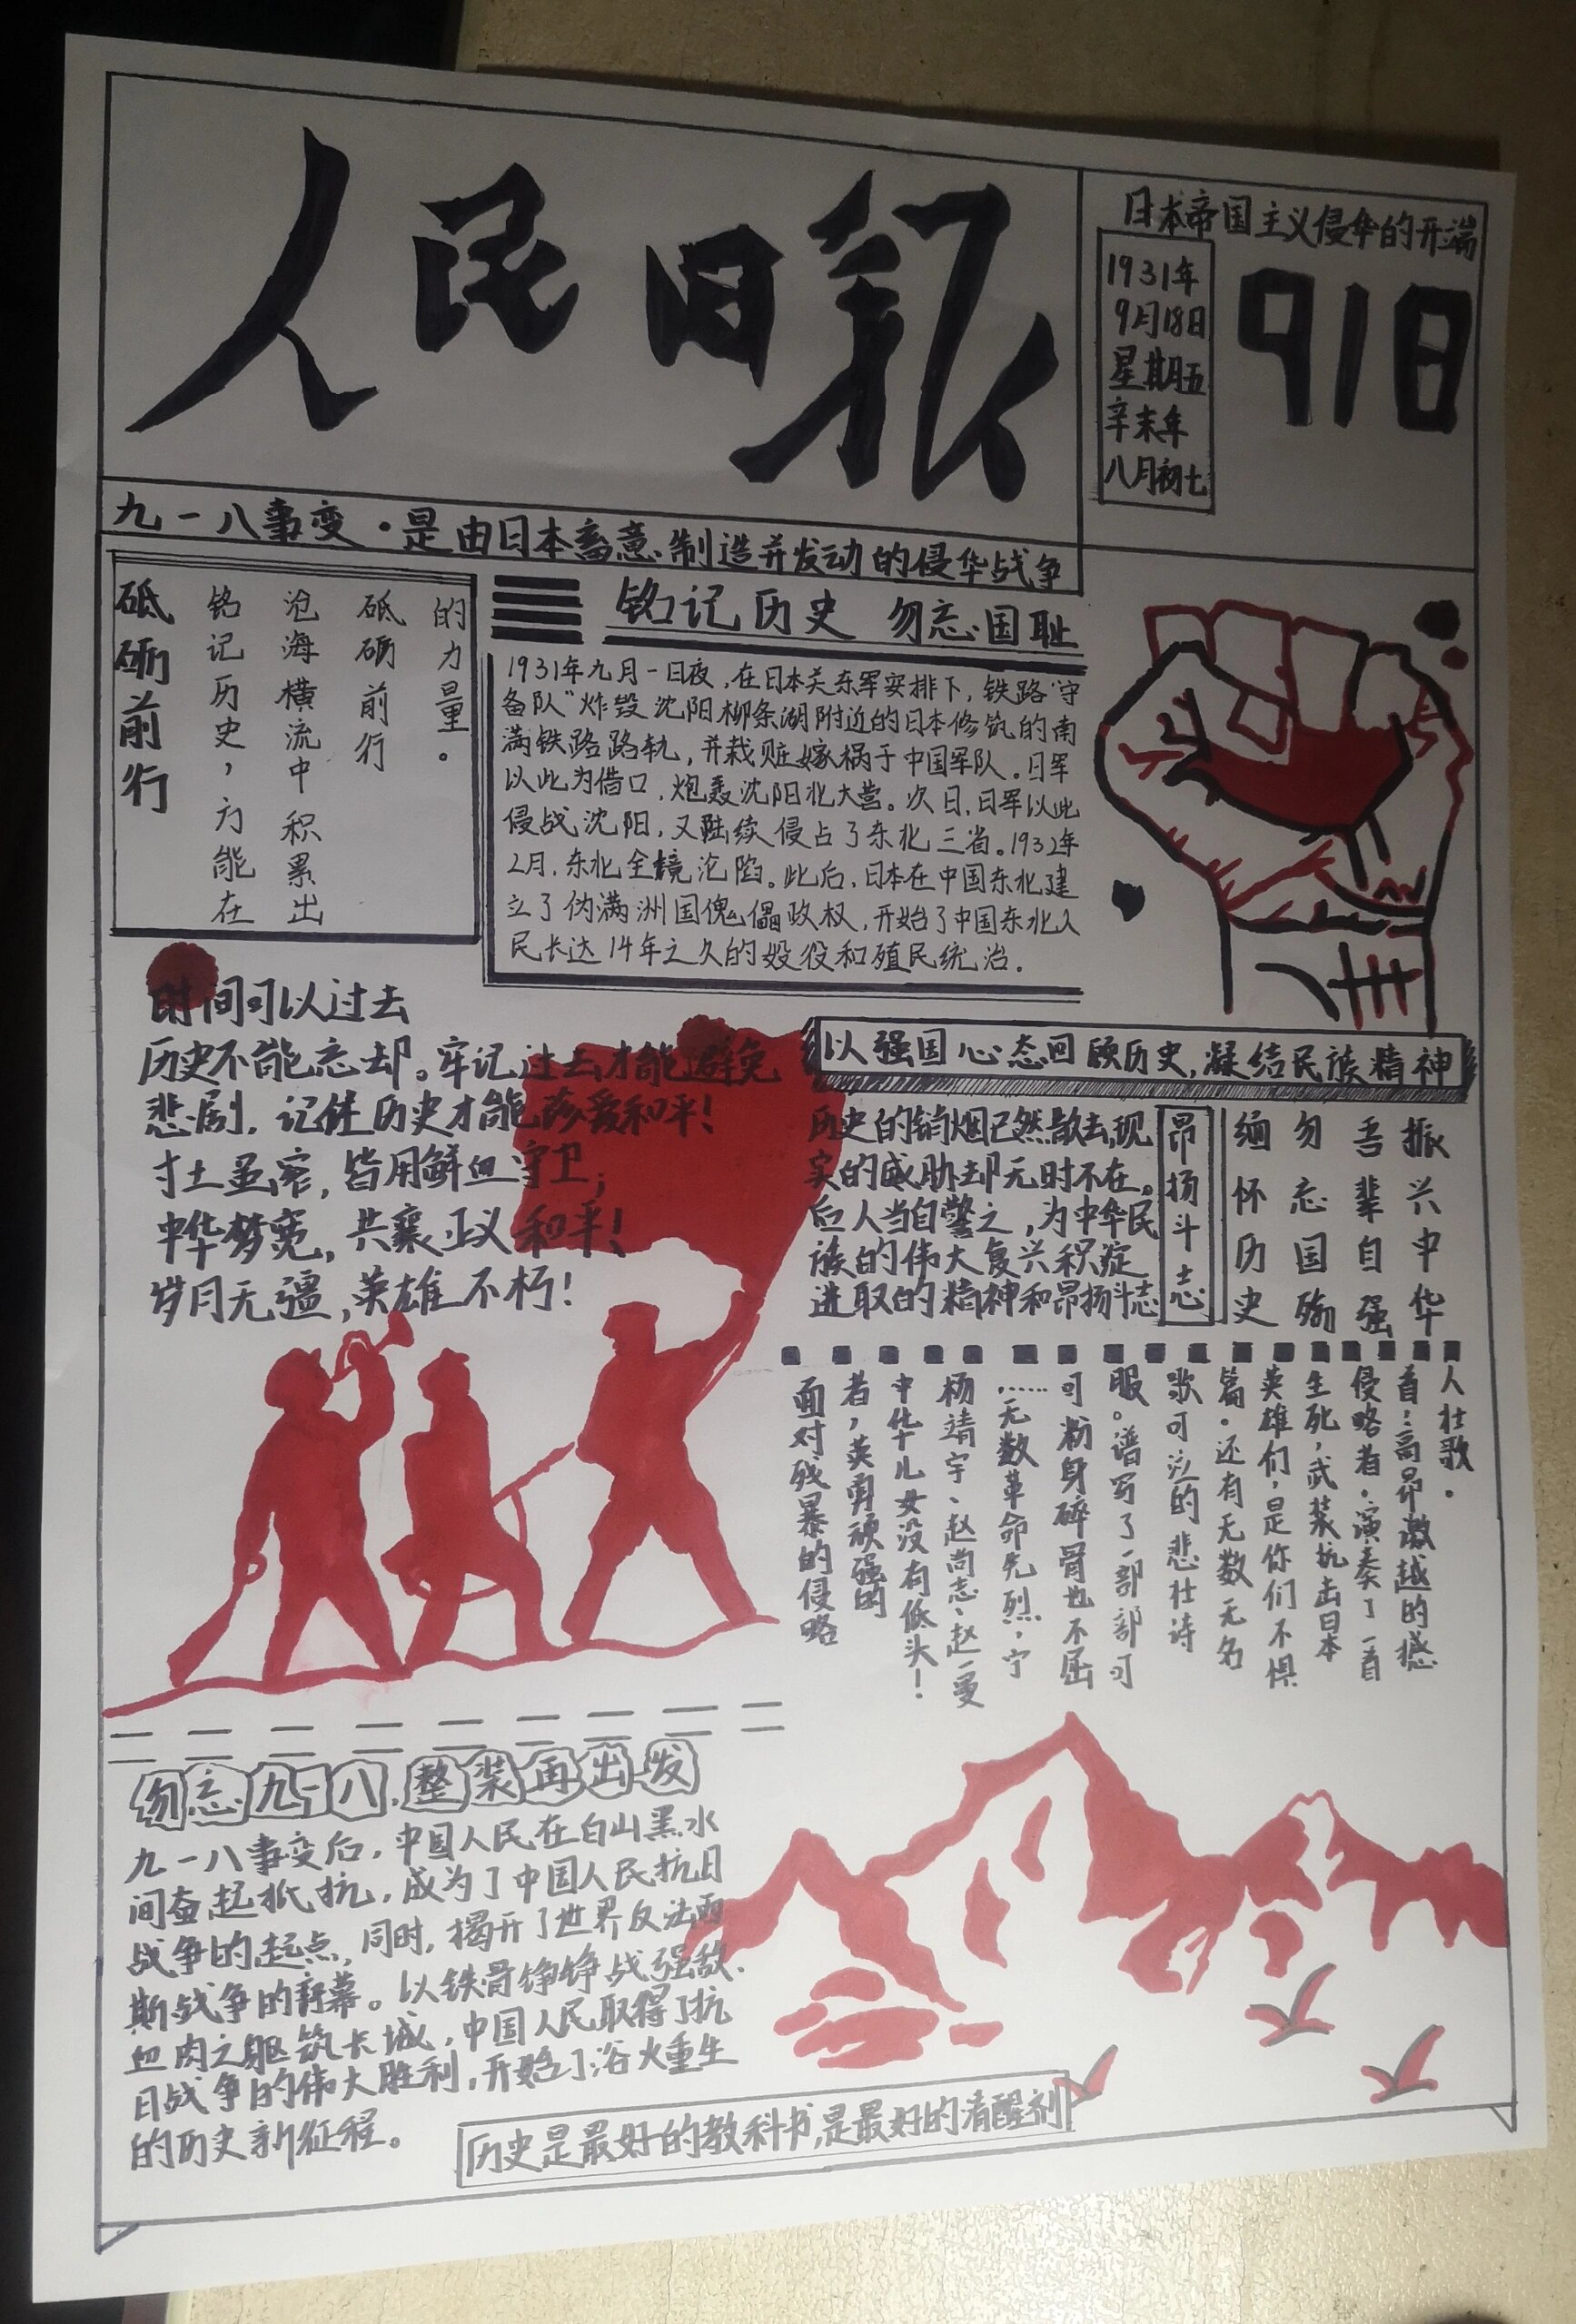 人民日报
日本帝国主义侵华的开端
1931年
9月18日
星期五
辛未年
八月初七
918
九一八事变·是由日本蓄意制造并发动的侵华战争
砥砺前行
铭记历史，方能在
沧海横流中积累出
砥砺前行
的力量。
铭记历史 勿忘国耻
1931年九月一日夜，在日本关东军安排下，铁路“守
备队”炸毁沈阳柳条湖附近的日本修筑的南
满铁路路轨，并栽赃嫁祸于中国军队。日军
以此为借口，炮轰沈阳北大营。次日，日军以此
侵战沈阳，又陆续侵占了东北三省。1932年
2月，东北全境沦陷。此后，日本在中国东北建
立了伪满洲国傀儡政权，开始了中国东北人
民长达14年之久的奴役和殖民统治.
时间可以过去
历史不能忘却。牢记过去才能避免
悲剧，记住历史才能珍爱和平！
寸土虽宓，皆用鲜血守卫；
中华梦宽，共襄正义和平！
岁月无疆，英雄不朽！
以强国心态回顾历史，凝结民族精神
历史的销烟已然散去，现
实的威胁却无时不在。
后人当自警之，为中华民
族的伟大复兴积淀
进取的精神和昂扬斗志
昂扬斗志
缅怀历史
勿忘国殇
吾辈自强
振兴中华
面对残暴的侵略
者，英勇顽强的
中华儿女没有低头！
杨靖宇、赵尚志、赵一曼
……无数革命先烈，宁
可粉身碎骨也不屈
服。谱写了一部部可
歌可泣的悲壮诗
篇。还有无数无名
英雄们，是你们不惧
生死，武装抗击日本
侵略者，演奏了一首
首：高昂激越的撼
人壮歌。
勿忘九一八，整装再出发
九一八事变后，中国人民在白山黑水
间奋起抵抗，成为了中国人民抗日
战争的起点，同时，揭开了世界反法西
斯战争的序幕。以铁骨铮铮战强敌.
血肉之躯筑长城，中国人民取得了抗
日战争的伟大胜利，开始了浴火重生
的历史新征程。
历史是最好的教科书，是最好的清醒剂